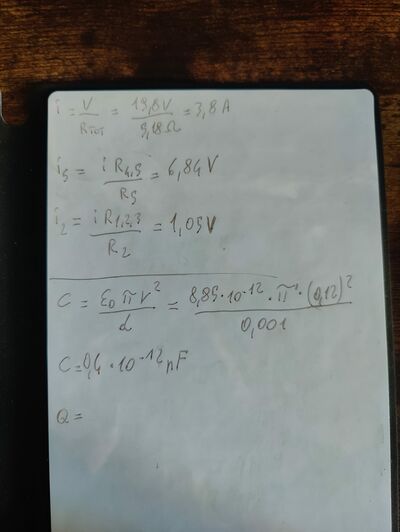 i = V/R_TOT = 19,8V/5,18Ω = 3,8 A
i_5 = i R_4,5/R_5 = 6,84 V
i_2 = i R_1,2,3/R_2 = 1,05V
C = ε_0 π r²/d = 8,85·10⁻¹²·π·(0,12)²/0,001
C = 0,4 · 10⁻¹² nF
Q =